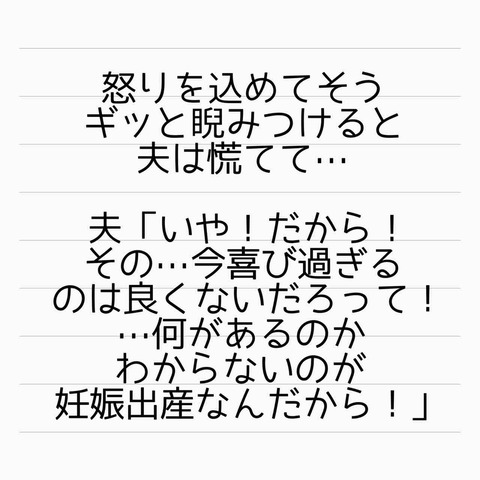 怒りを込めてそう
ギッと睨みつけると
夫は慌てて…
夫「いや！だから！
その…今喜び過ぎる
のは良くないだろって！
…何があるのか
わからないのが
妊娠出産なんだから！」